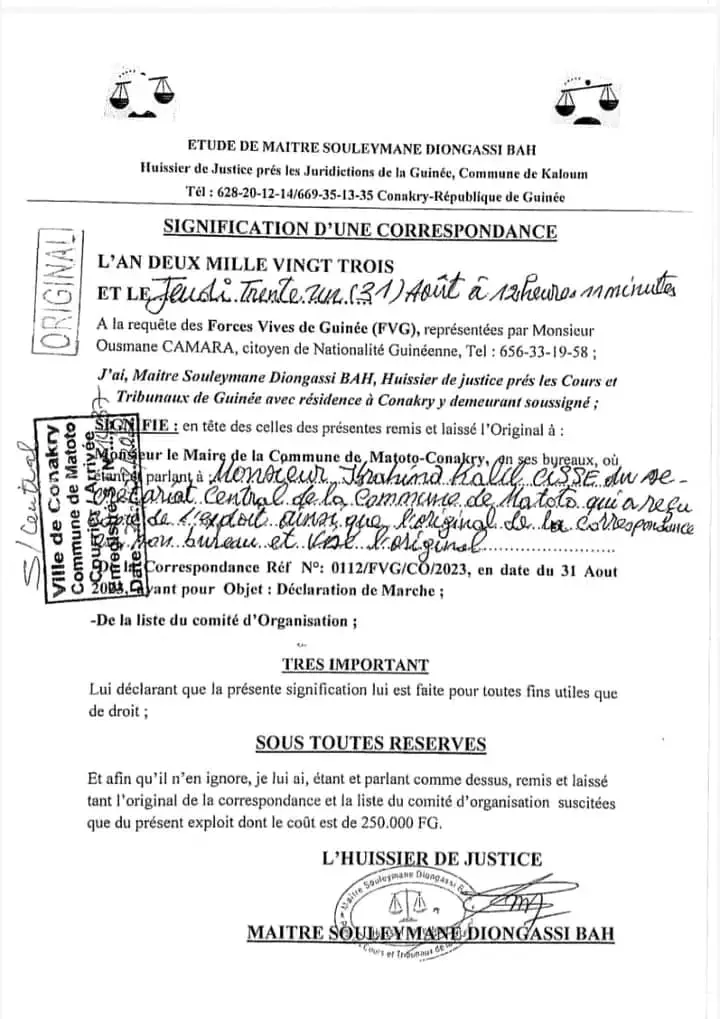 ETUDE DE MAITRE SOULEYMANE DIONGASSI BAH
Huissier de Justice prés les Juridictions de la Guinée, Commune de Kaloum
Tél : 628-20-12-14/669-35-13-35 Conakry-République de Guinée
SIGNIFICATION D'UNE CORRESPONDANCE
ORIGINAL
L'AN DEUX MILLE VINGT TROIS
ET LE Jeudi Trente un (31) Août à 12 heures 11 minutes
A la requête des Forces Vives de Guinée (FVG), représentées par Monsieur
Ousmane CAMARA, citoyen de Nationalité Guinéenne, Tel : 656-33-19-58 ;
J'ai, Maitre Souleymane Diongassi BAH, Huissier de justice prés les Cours et
Tribunaux de Guinée avec résidence à Conakry y demeurant soussigné ;
SIGNIFIE : en tête des celles des présentes remis et laissé l'Original à :
Monsieur le Maire de la Commune de Matoto-Conakry, en ses bureaux, où
étant et parlant à : Monsieur Ibrahima Kalil CISSE du se-
cretariat Central de la Commune de Matoto qui a reçu
de l'exploit ainsi que l'original de la correspondance
mon bureau et visé l'original
S/Central
Ville de Conakry
Commune de Matoto
Courrier Arrivée
Enregistrée N°
Date
De la Correspondance Réf N°: 0112/FVG/CO/2023, en date du 31 Aout
2023, ayant pour Objet : Déclaration de Marche ;
-De la liste du comité d'Organisation ;
TRES IMPORTANT
Lui déclarant que la présente signification lui est faite pour toutes fins utiles que
de droit ;
SOUS TOUTES RESERVES
Et afin qu'il n'en ignore, je lui ai, étant et parlant comme dessus, remis et laissé
tant l'original de la correspondance et la liste du comité d'organisation suscitées
que du présent exploit dont le coût est de 250.000 FG.
L'HUISSIER DE JUSTICE
Maitre Souleymane Diongassi
MAITRE SOULEYMANE DIONGASSI BAH
Cours et Tribunaux de